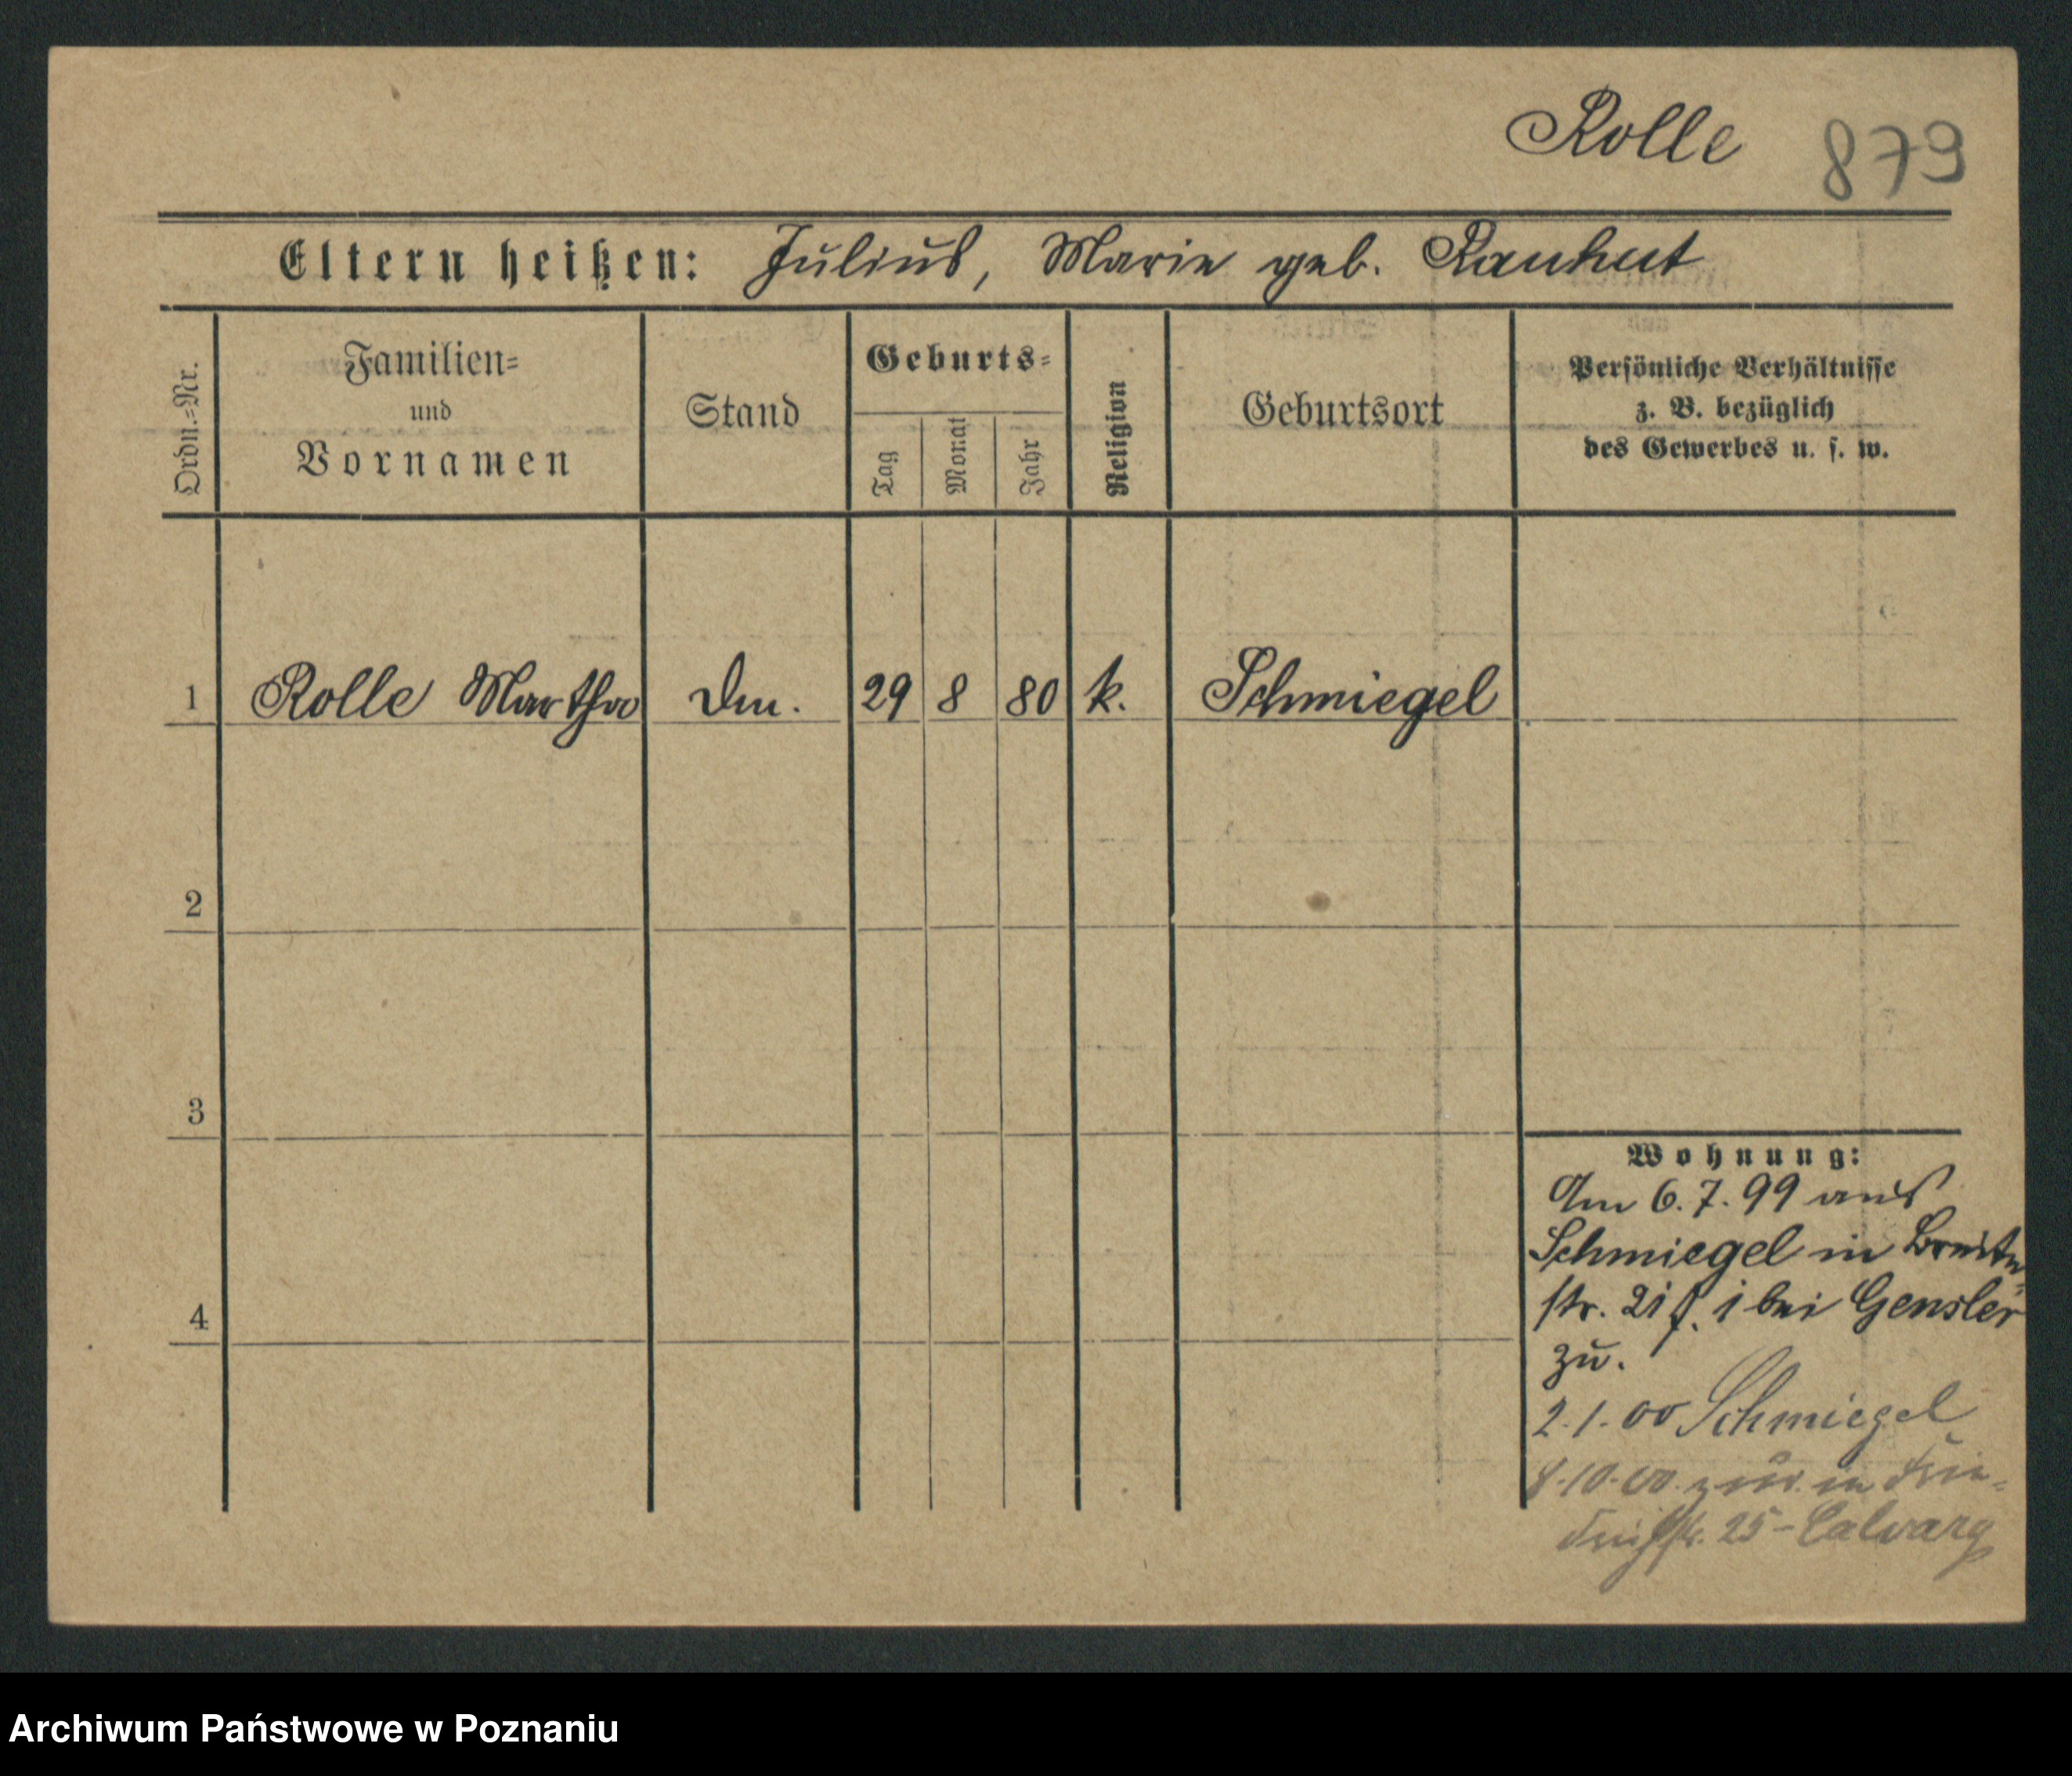 Rolle 879
Eltern heißen: Julius, Marie geb. Rauhut
Ordn.=Nr.
Familien=
und
Vornamen
Stand
Geburts=
Tag
Monat
Jahr
Religion
Geburtsort
Persönliche Verhältnisse
z. B. bezüglich
des Gewerbes u. s. w.
1 Rolle Martha 29 8 80 k. Schmiegel
2
3
4
Wohnung:
Am 6. 7. 99 aus
Schmiegel in Breite-
str. 21 I bei Gensler
zu.
2.1.00 Schmiegel
10.00 zur. in Frie-
drichstr. 25 - Calvary
Archiwum Państwowe w Poznaniu